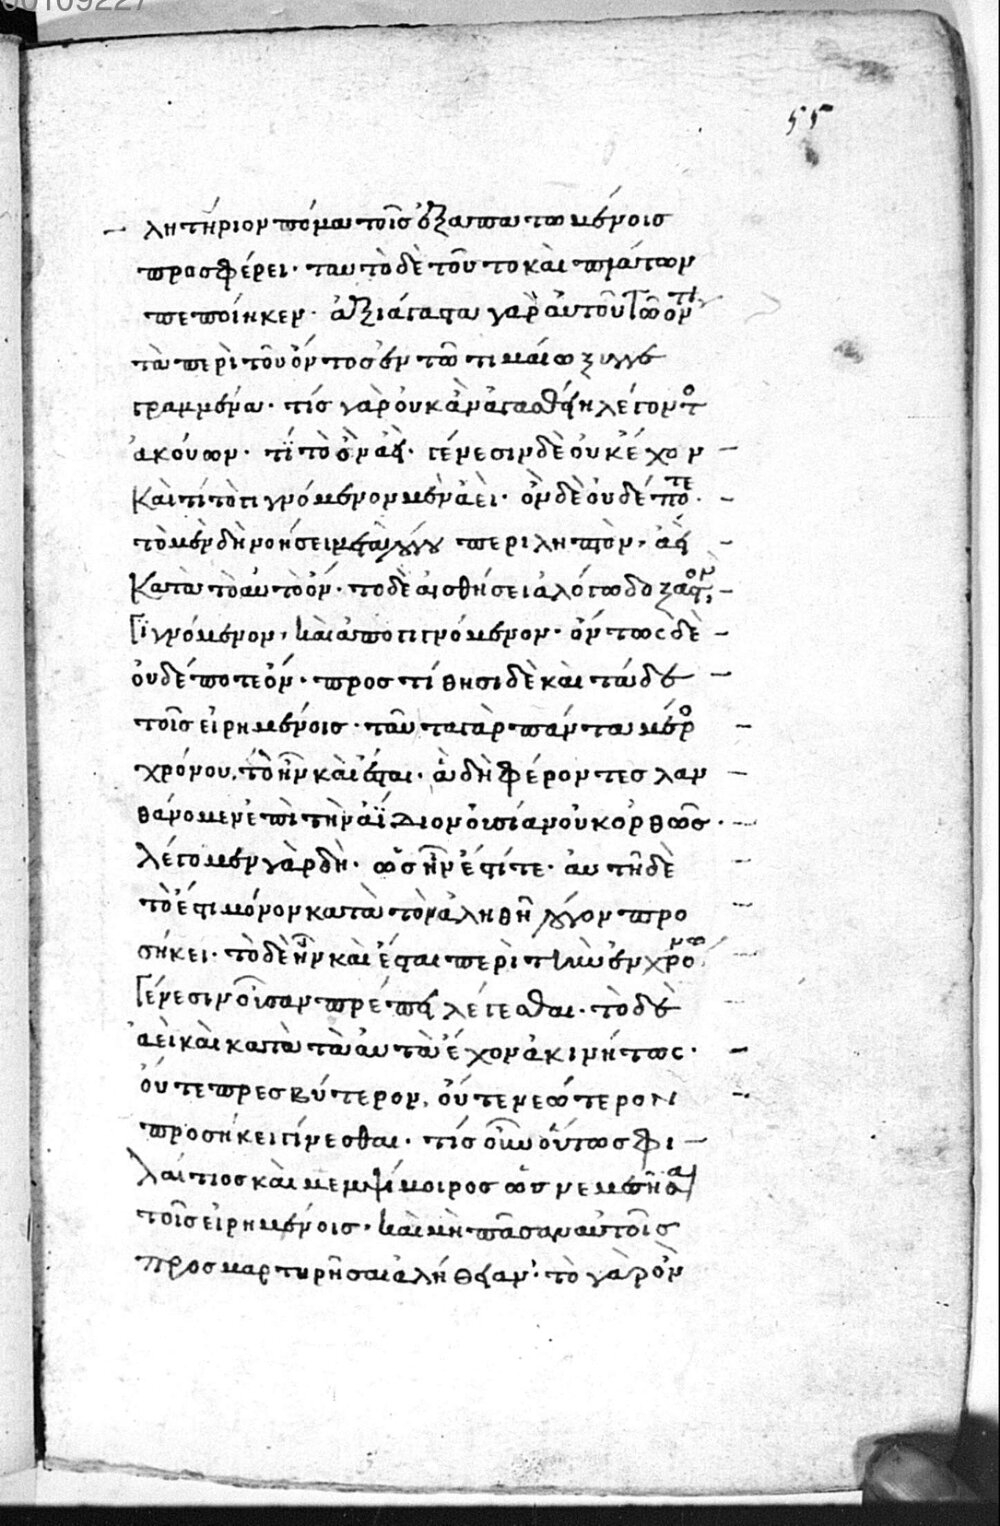 00109227
55
λητήριον πόμα τοῖς ἐξαπατωμένοις
προσφέρει· ταυτὸ δὲ τοῦτο καὶ πλάτων
πεποίηκεν· ἀξιάγαστα γὰρ αὐτοῦ τῷ ὄντι
τὰ περὶ τοῦ ὄντος ἐν τῶ τιμαίω ξυγγε
γραμμένα· τίς γὰρ οὐκ ἂν ἀγασθείη λέγοντος
ἀκούων· τί τὸ ὂν ἀεὶ· γένεσιν δὲ οὐκ ἔχον
καὶ τί τὸ γιγνόμενον μὲν ἀεὶ· ὂν δὲ οὐδέποτε·
τὸ μὲν δὴ νοήσει μετὰ λόγου περιληπτὸν, ἀεὶ
κατὰ τὸ αυτὸ ὄν· το δὲ αἰσθήσει ἀλόγω δοξαστὸν,
γιγνόμενον, καὶ ἀπογιγνόμενον· ὄντως δὲ
οὐδέποτε ὄν· προστίθησι δὲ καὶ τάδε
τοῖς εἰρημένοις· ταῦτα γὰρ πάντα μέρος
χρόνου, τὸ ἦν καὶ ἔσται· ἃ δὴ φέροντες λαν
θάνομεν ἐπὶ τὴν ἀΐδιον οὐσίαν οὐκ ὀρθῶς·
λέγομεν γὰρ δὴ· ὡς ἦν ἔστι τε· αυτῆ δὲ
τὸ ἔστι μόνον κατὰ τὸν ἀληθῆ λόγον προ
σήκει· τὸ δὲ ἦν καὶ ἔσται περὶ τὴν ἐν χρόνω
γένεσιν οὖσαν πρέπει λέγεσθαι· τὸ δὲ
ἀεὶ καὶ κατὰ τὰ αυτὰ ἔχον ἀκινήτως·
οὔτε πρεσβύτερον, οὔτε νεώτερον
προσήκει γίνεσθαι· τίς οὖν οὕτως φι
λαίτιος καὶ μεμψίμοιρος ὡς νεμεσῆσαι
τοῖς εἰρημένοις· καὶ μὴ πᾶσαν αὐτοῖς
προσμαρτυρῆσαι ἀλήθειαν· τὸ γὰρ ὂν